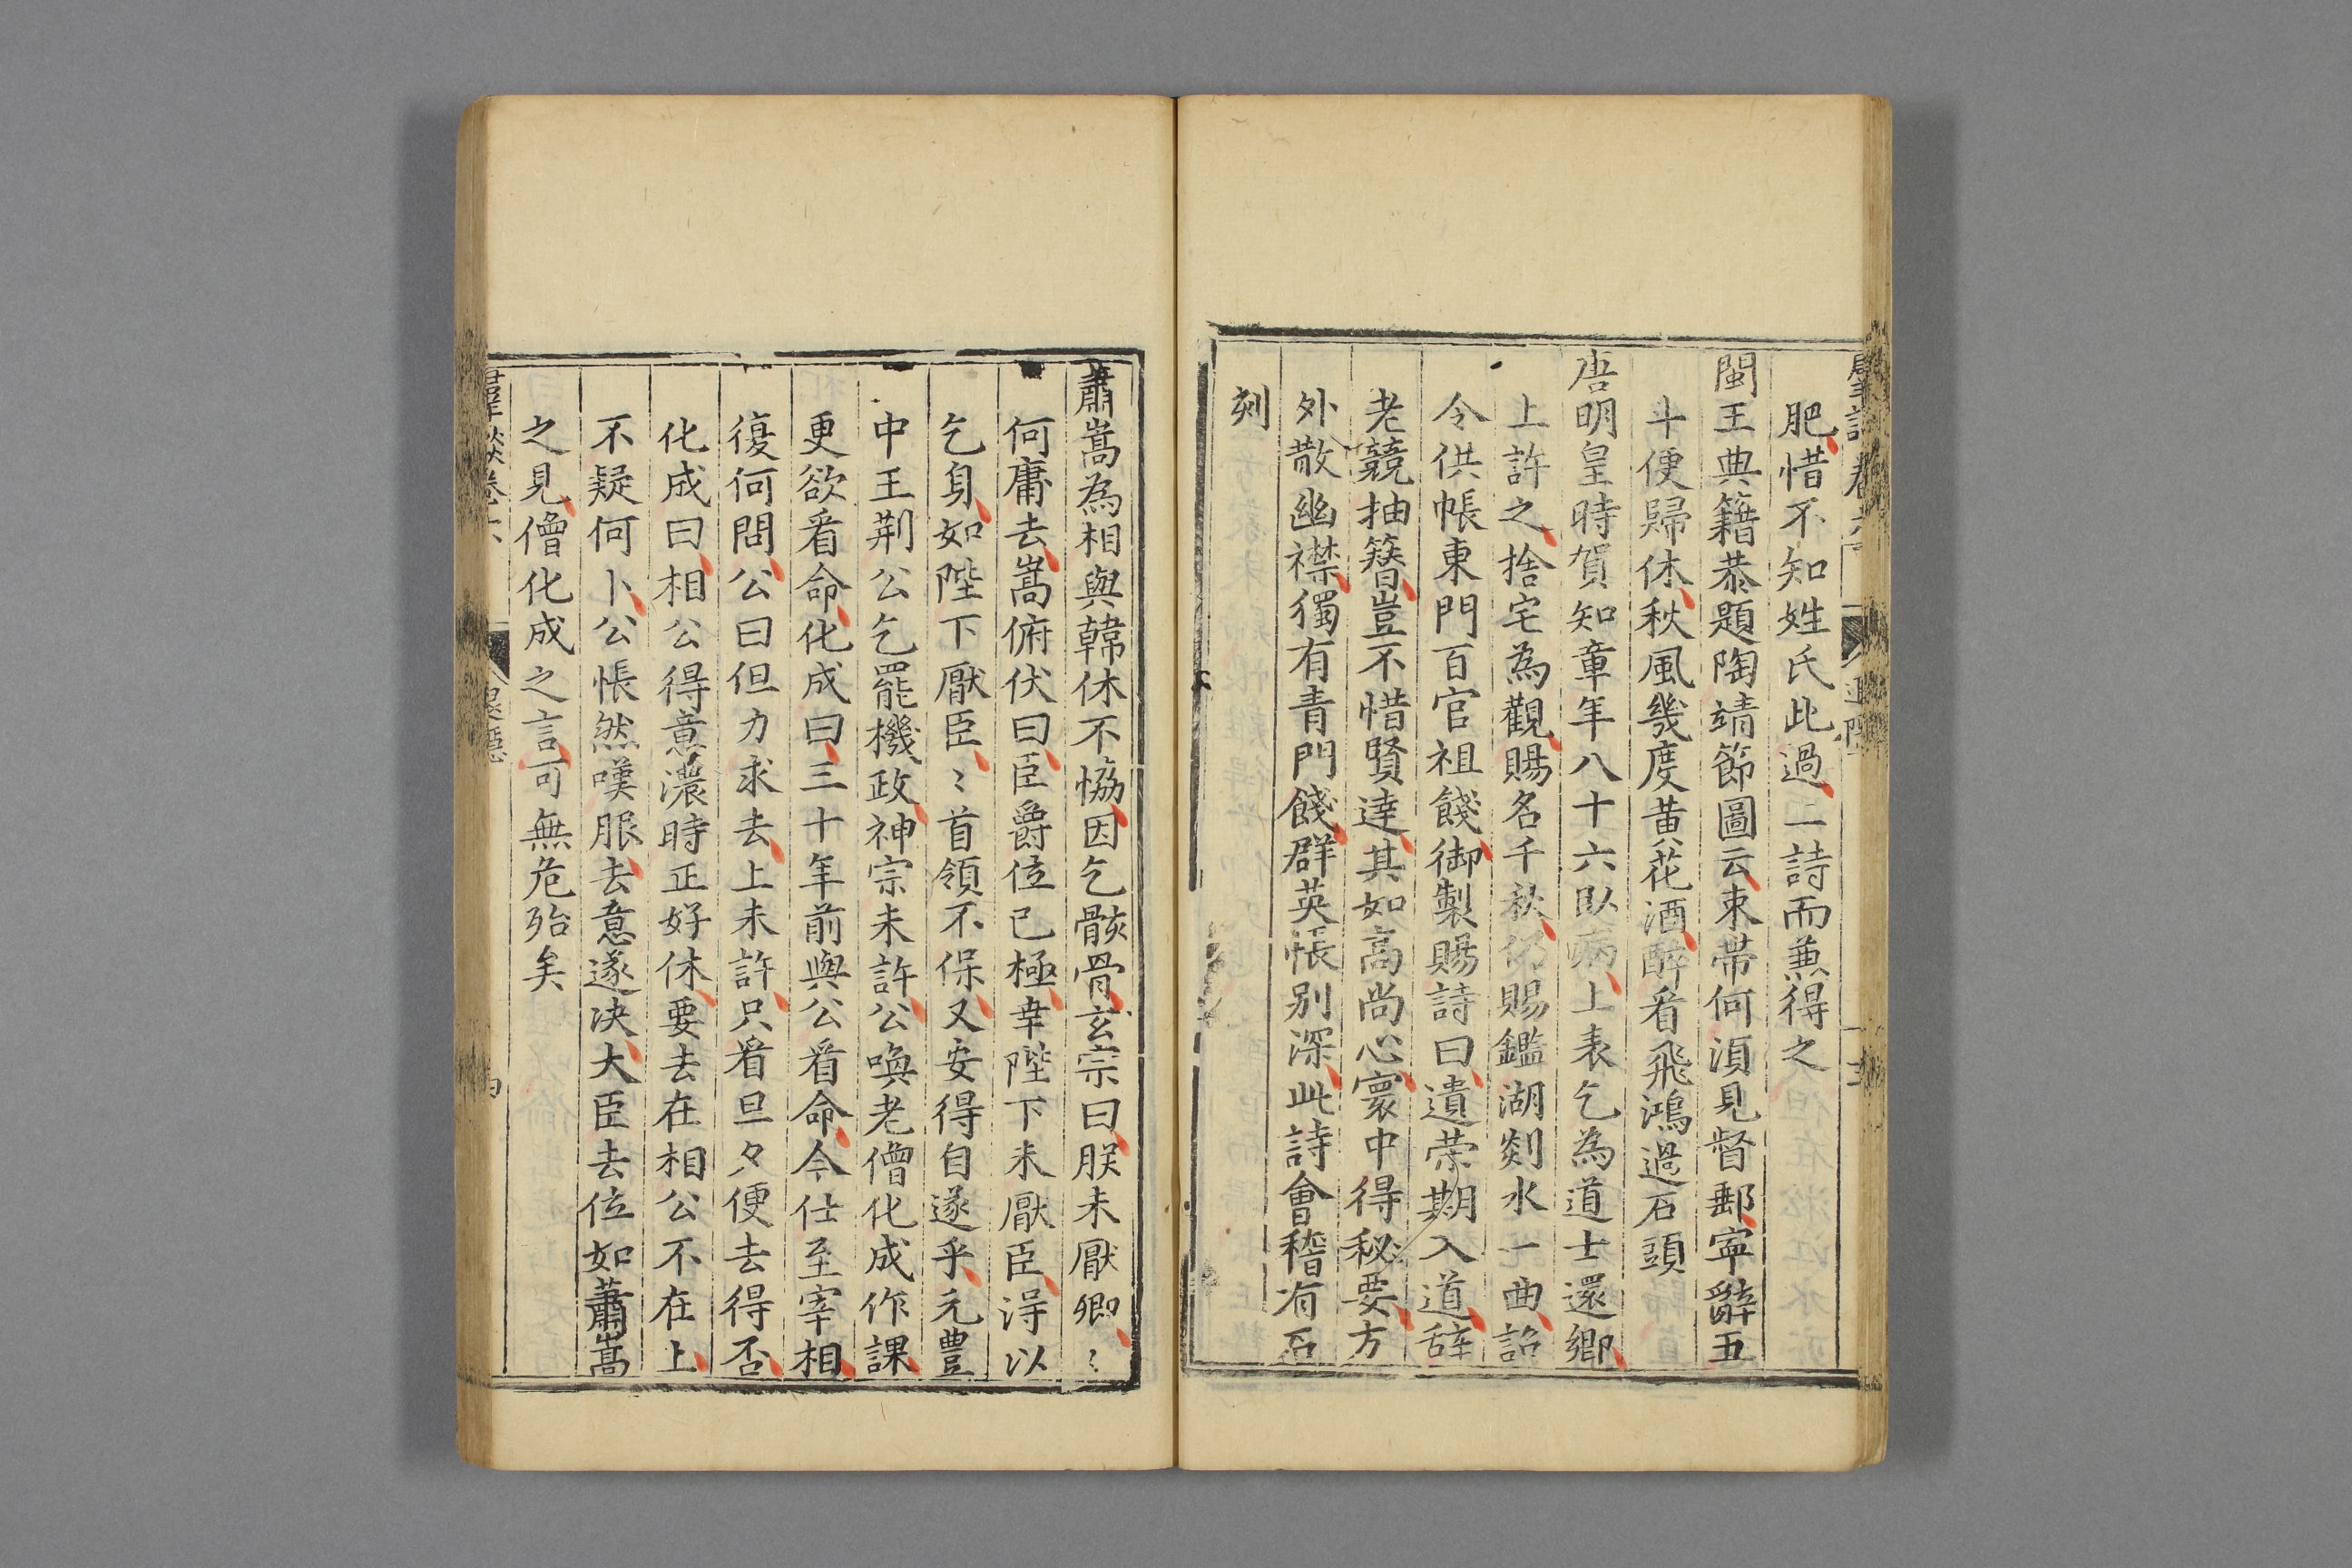 肥惜不知姓氏此過二詩而兼得之
閩王典籍恭題陶靖節圖云束帶何須見督郵寜辭五
斗便歸休秋風幾度黄花酒醉看飛鴻過石頭
唐明皇時賀知章年八十六臥病上表乞為道士還鄉
上許之捨宅為觀賜名千秋仍賜鑑湖剡水一曲詔
令供帳東門百官祖餞御製賜詩曰遺荣期入道辞
老競抽簪豈不惜賢達其如高尚心寰中得秘要方
外散幽襟獨有青門餞群英悵别深此詩會稽有石
刻
蕭嵩為相與韓休不恊因乞骸骨玄宗曰朕未厭卿〻
何庸去嵩俯伏曰臣爵位已極幸陛下未厭臣得以
乞身如陛下厭臣〻首領不保又安得自遂乎元豊
中王荆公乞罷機政神宗未許公喚老僧化成作課
更欲看命化成曰三十年前與公看命今仕至宰相
復何問公曰但力求去上未許只看旦夕便去得否
化成曰相公得意濃時正好休要去在相公不在上
不疑何卜公悵然嘆服去意遂决大臣去位如蕭嵩
之見僧化成之言可無危殆矣